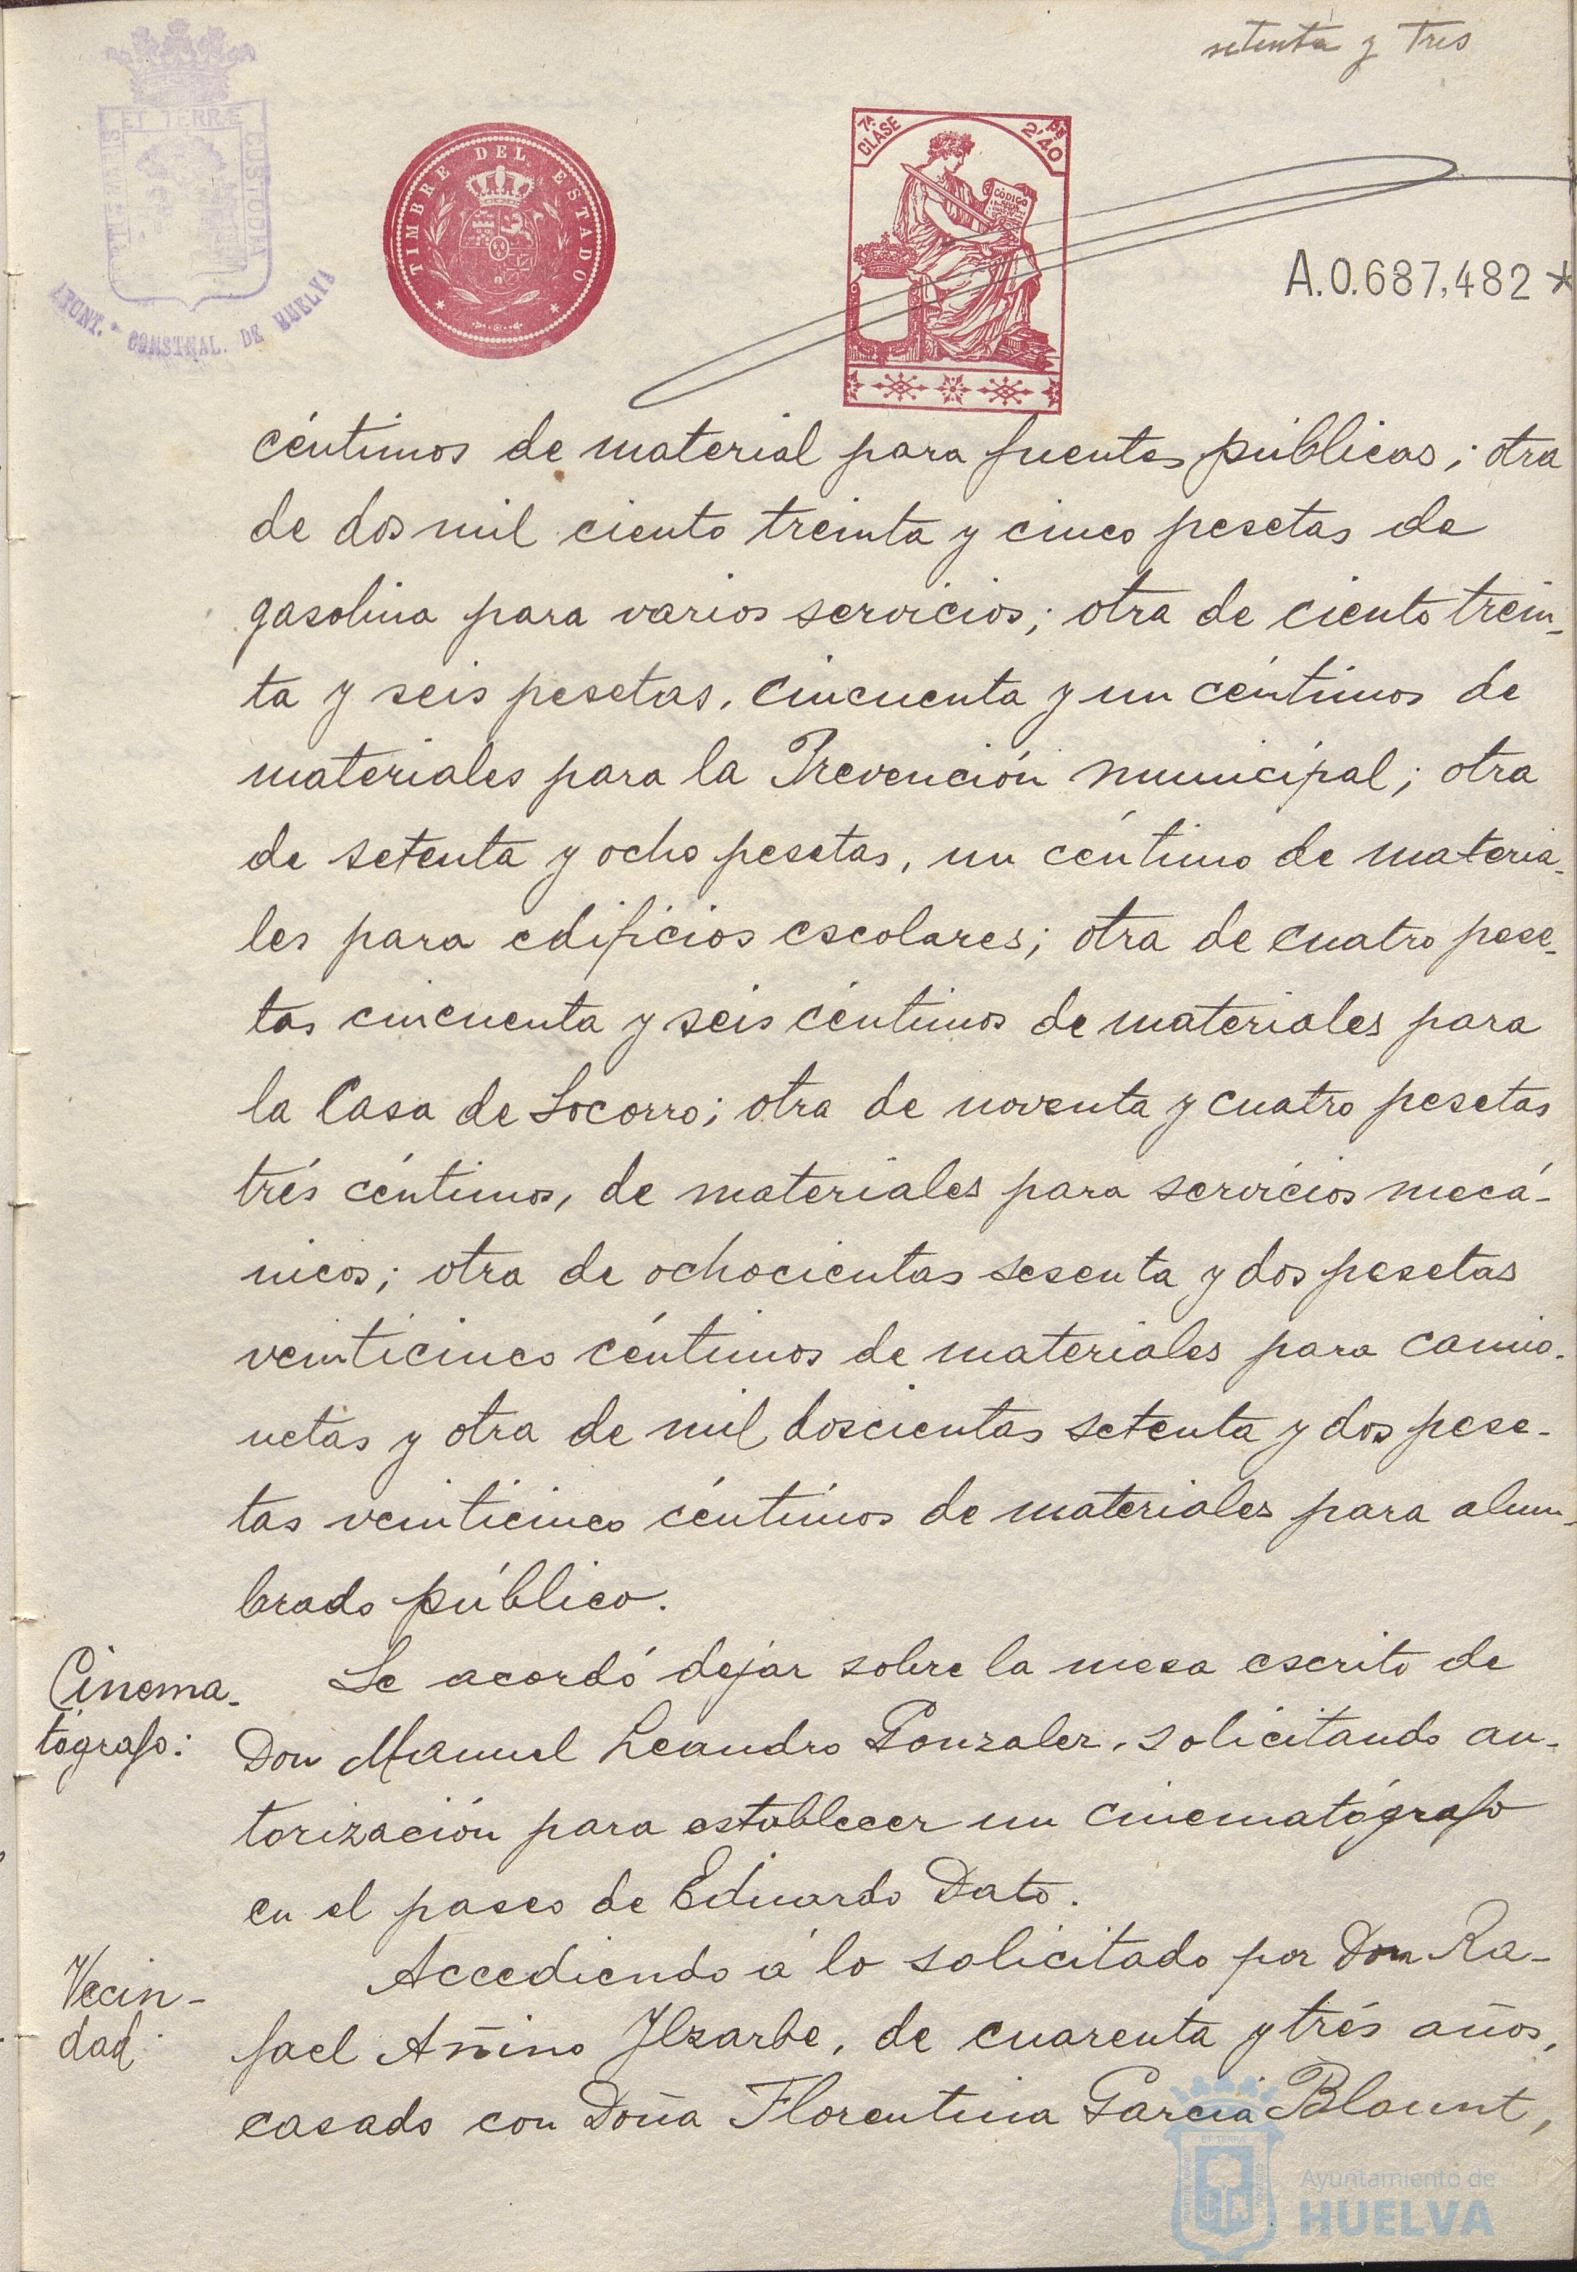 setenta y tres
ET TERRÆ
CUSTODIA
AYUNT. CONSTNAL. DE HUELVA
TIMBRE DEL ESTADO
7ª CLASE
2'40
CÓDIGO
A.0.687,482*
céntimos de material para fuentes públicas; otra
de dos mil ciento treinta y cinco pesetas de
gasolina para varios servicios; otra de ciento trein-
ta y seis pesetas, cincuenta y un céntimos de
materiales para la Prevención municipal; otra
de setenta y ocho pesetas, un céntimo de materia-
les para edificios escolares; otra de cuatro pese-
tas cincuenta y seis céntimos de materiales para
la Casa de Socorro; otra de noventa y cuatro pesetas
trés céntimos, de materiales para servicios mecá-
nicos; otra de ochocientas sesenta y dos pesetas
veinticinco céntimos de materiales para camio-
netas y otra de mil doscientas setenta y dos pese-
tas veinticinco céntimos de materiales para alum-
brado público.
Cinema-
tógrafo:
Se acordó dejar sobre la mesa escrito de
Don Manuel Leandro Gonzalez, solicitando au-
torización para establecer un cinematógrafo
en el paseo de Eduardo Dato.
Vecin-
dad:
Accediendo á lo solicitado por Don Ra-
fael Añino Ilzarbe, de cuarenta y trés años,
casado con Doña Florentina Garcia Blount,
Ayuntamiento de
HUELVA